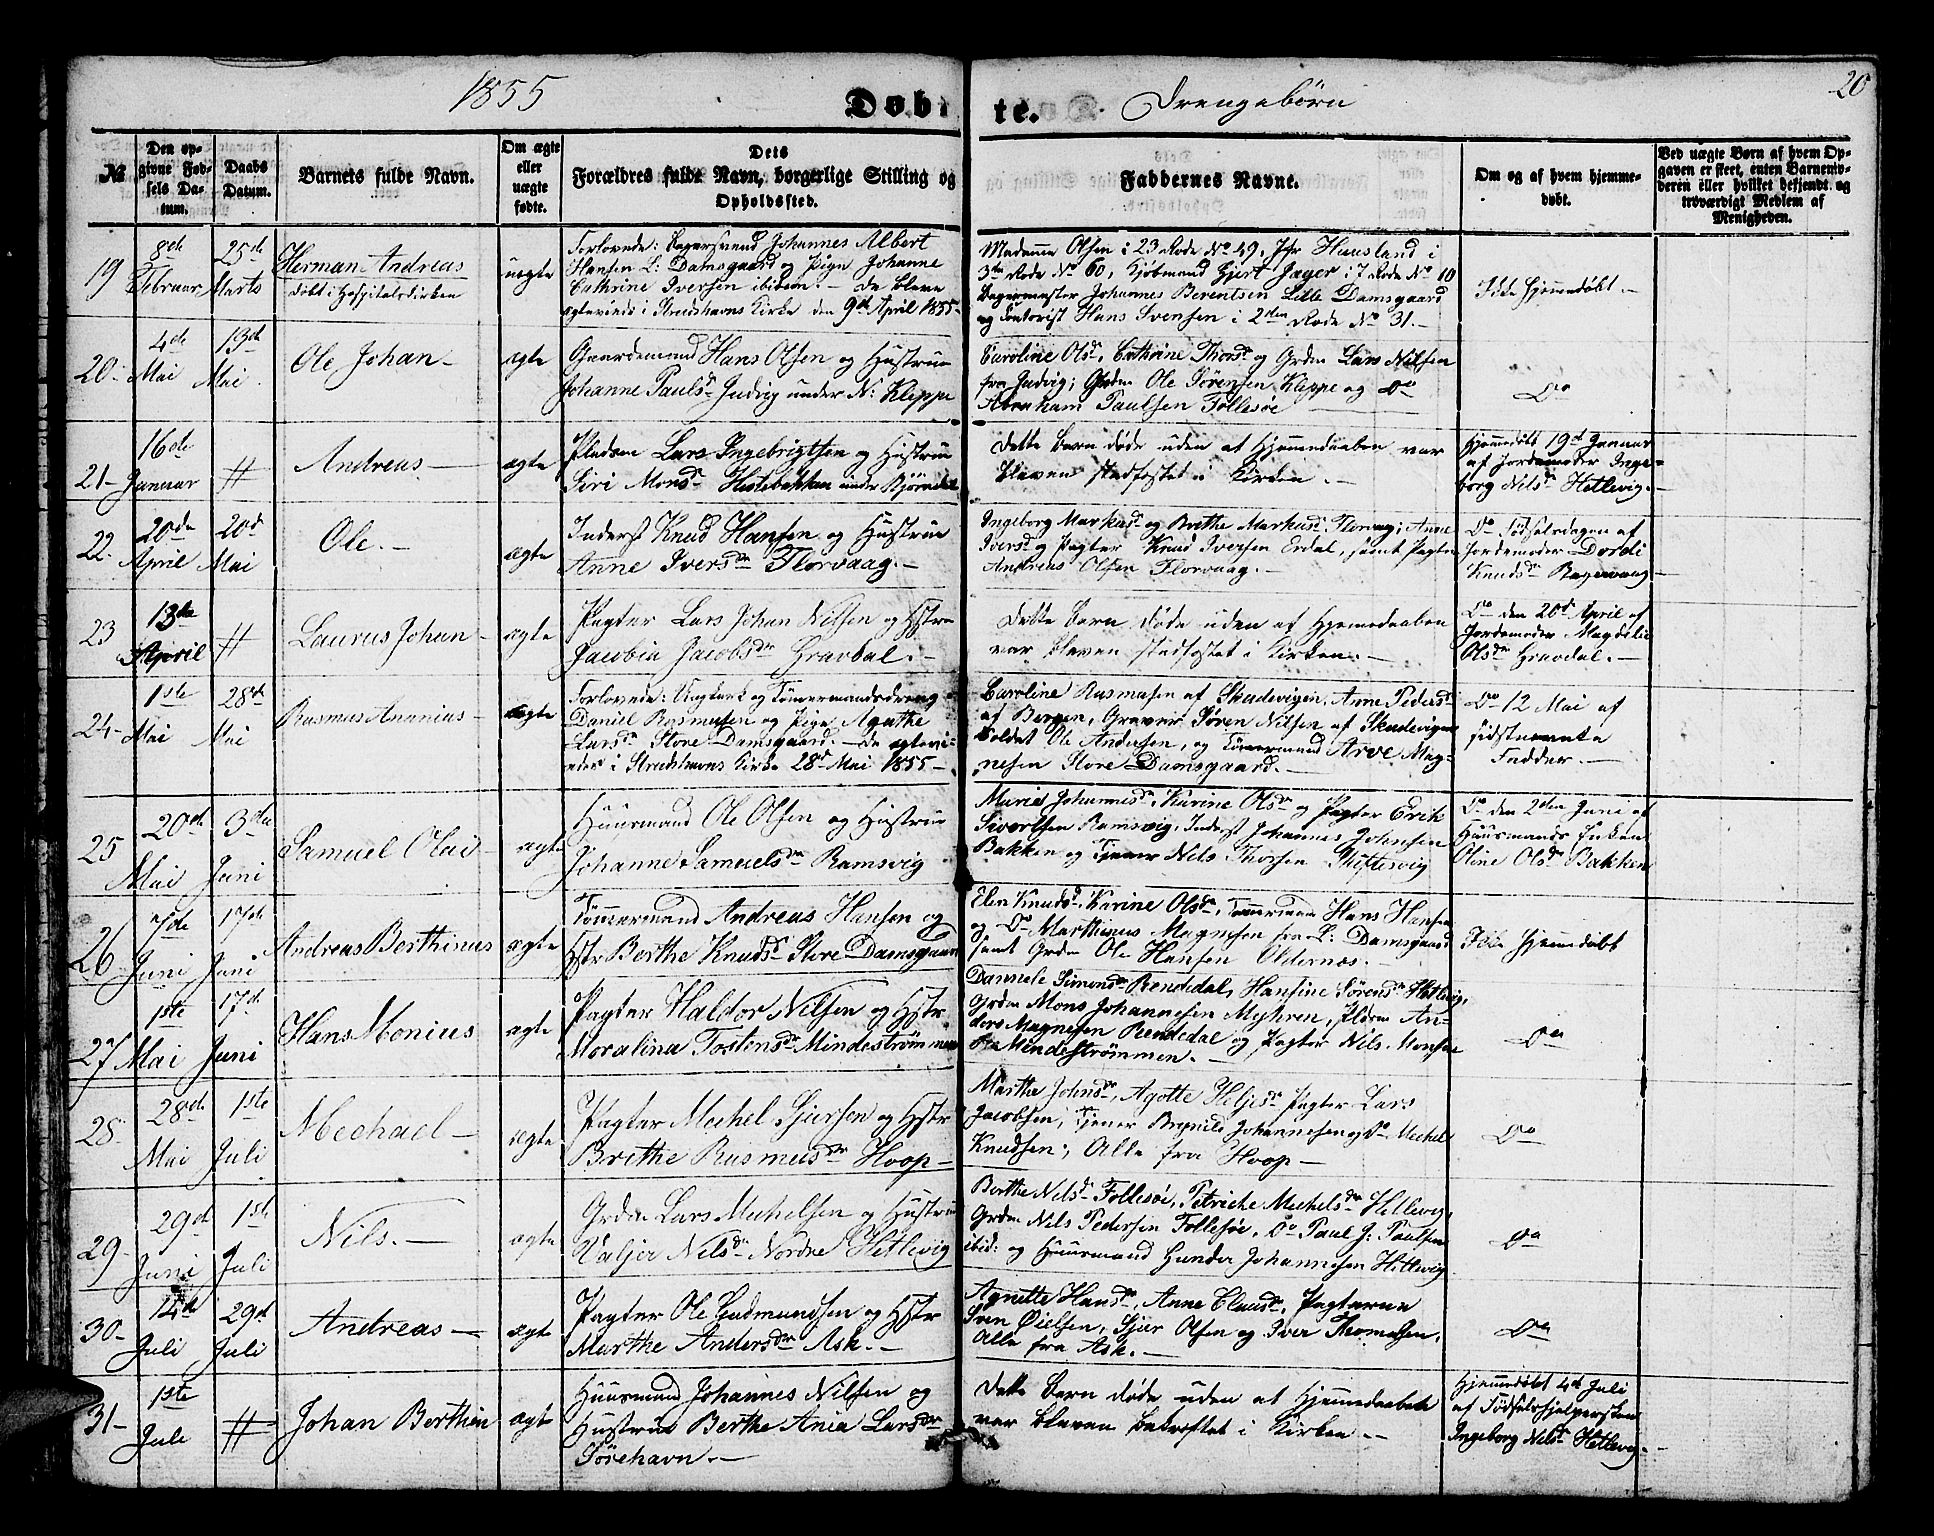 1855
Døbte. Drengebørn
20
№
Den opgivne Fødsels Datum.
Daabs Datum.
Barnets fulde Navn.
Om ægte eller uægte fødte.
Dets Forældres fulde Navn, borgerlige Stilling og Opholdssted.
Faddernes Navne.
Om og af hvem hjemmedøbt.
Ved uægte Børn af hvem Opgaven er skeet, enten Barnemoderen eller hvilket bekjendt og troværdigt Medlem af Menigheden.
19
8de Februar
25de Marts
Herman Andreas
døbt i Hospitalskirken
uægte
Forlovede: Bagersvend Johannes Albert
Hansen L: Damsgaard og Pige Johanne
Cathrine Iversen ibidem. – De bleve
egteviede i Strudshavns Kirke den 9de April 1855 –
Madamme Olsen i 23 Rode No 49, Jfr Huusland i
3die Rode No 60, Kjøbmand Gjert Jager i 7 Rode No 10
Bagermester Johannes Berentsen Lille Damsgaard
og Contorist Hans Svensen i 2den Rode No 31. –
Ikke hjemmedøbt –
20 –
4de Mai
13de Mai
Ole Johan –
ægte
Gaardemand Hans Olsen og Hustrue
Johanne Paulsdr Judvig under N: Kleppe
Caroline Olsdr, Cathrine Thorsdr og Grdm Lars Nilsen
fra Judvig; Grdm Ole Sørensen Kleppe og Do
Abraham Paulsen Follesøe –
Do
21 –
16de Januar
#
Andreas –
ægte
Pladsm Lars Ingebrigtsen og Hustrue
Siri Monsdr Hestebakken under Bjørndal
Dette Barn døde uden at Hjemmedaaben var
bleven stadfæstet i Kirken. –
Hjemmedøbt 19de Januar
af Jordemoder Inge-
borg Nilsdr Hetlevig. –
22 –
20de April
20de Mai
Ole. –
ægte
Inderst Knud Hansen og Hustrue
Anne Iversdr Florvaag. –
Ingeborg Markusdr og Brithe Markusdr Florvaag; Anne
Iversdr og Pagter Knud Iversen Erdal, samt Pagter
Andreas Olsen Florvaag. –
Do Fødselsdagen af
Jordemoder Dordi
Knudsdr
23
13de April
#
Laurus Johan –
ægte
Pagter Lars Johan Nilsen og Hstru
Jacobia Jacobsdr Gravdal. –
Dette Barn døde uden at Hjemmedaaben
var bleven stadfæstet i Kirken. –
Do den 20de April af
Jordemoder Magdeli
Olsdr Gravdal. –
24 –
1ste Mai
28de Mai
Rasmus Ananias –
ægte
Forlovede: Ungkarl og Tømmermandsdreng
Daniel Rasmusen og Pige Agathe
Larsdr Store Damsgaard. – De egtevi-
edes i Strudshavns Kirke 28de Mai 1855 –
Caroline Rasmusen af Skudevigen, Anne Pedersdr
af Bergen, Graveur Søren Nilsen af Skudevigen
Soldat Ole Andersen, og Tømmermand Arve Mag-
nesen Store Damsgaard. –
Do 12 Mai af
sidstnævnte
Fadder. –
25
20de Mai
3die Juni
Samuel Olai
ægte
Huusmand Ole Olsen og Hustrue
Johanne Samuelsdr Ramsvig
Marie Johannesdr, Karine Olsdr og Pagter Erik
Sivertsen Ramsvig, Inderst Johannes Johnsen
Bakken og Tjener Nils Thorsen
Do den 2den Juni af
Huusmands Enken
Oline Olsdr Bakken
26
7de Juni
17de Juni
Andreas Berthinus
ægte
Tømmermand Andreas Hansen og
Hstr Berthe Knudsdr Store Damsgaard
Elen Knudsd, Karine Olsdr, Tømmerm Hans Hansen
og Do Marthinus Magnesen fra L: Damsgaard
samt Grdm Ole Hansen Oldernæs. –
Ikke hjemmedøbt
27
1ste Mai
17de Juni
Hans Monius
ægte
Pagter Haldor Nilsen og Hstr
Moralina Tostensdr Mindestrømmen
Dannele Simonsdr Rendedal, Hansine Sørensdr Hetlevig,
Grdm Mons Johannesen Myhren, Pldsm An-
ders Magnesen Rendedal og Pagter Nils Monsen
fra Mindestrømmen. –
Do
28 –
28de Mai
1ste Juli
Mechael –
ægte
Pagter Mechel Gjersen og Hstr
Brithe Rasmusdr Hoop –
Marthe Johnsdr, Agotte Heljesdr Pagter Lars
Jacobsen, Tjener Brynild Johannesen og Do Mechel
Knudsen; Alle fra Hoop –
Do
29 –
29de Juni
1ste Juli
Nils. –
ægte
Grdm Lars Mechelsen og Hustrue
Valjer Nilsdr Nordre Hetlevig
Berthe Nilsdr Follesøe, Petriche Mechelsdr Hetlevig,
Grdm Nils Pedersen Follesøe, Do Paul J: Paulsen
ibid: og Huusmand Gunder Johannesen Hetlevig
Do
30 –
14de Juli
29de Juli
Andreas –
ægte
Pagter Ole Gudmundsen og Hstr
Marthe Andersdr Ask. –
Agnette Hansdr, Anne Clausdr, Pagterne
Sven Øielsen, Gjer Olsen og Iver Thomasen,
Alle fra Ask. –
Do
31 –
1ste Jule
#
Johan Berthin
ægte
Huusmand Johannes Nilsen og
Hustrue Berthe Ania Larsdr
Sørehavn. –
Dette Barn døde uden at Hjemmedaaben
var bleven bekræftet i Kirken. –
Hjemmedøbt 4de Juli
af Fødselshjelpersken
Ingeborg Nilsdr Hetlevig. –